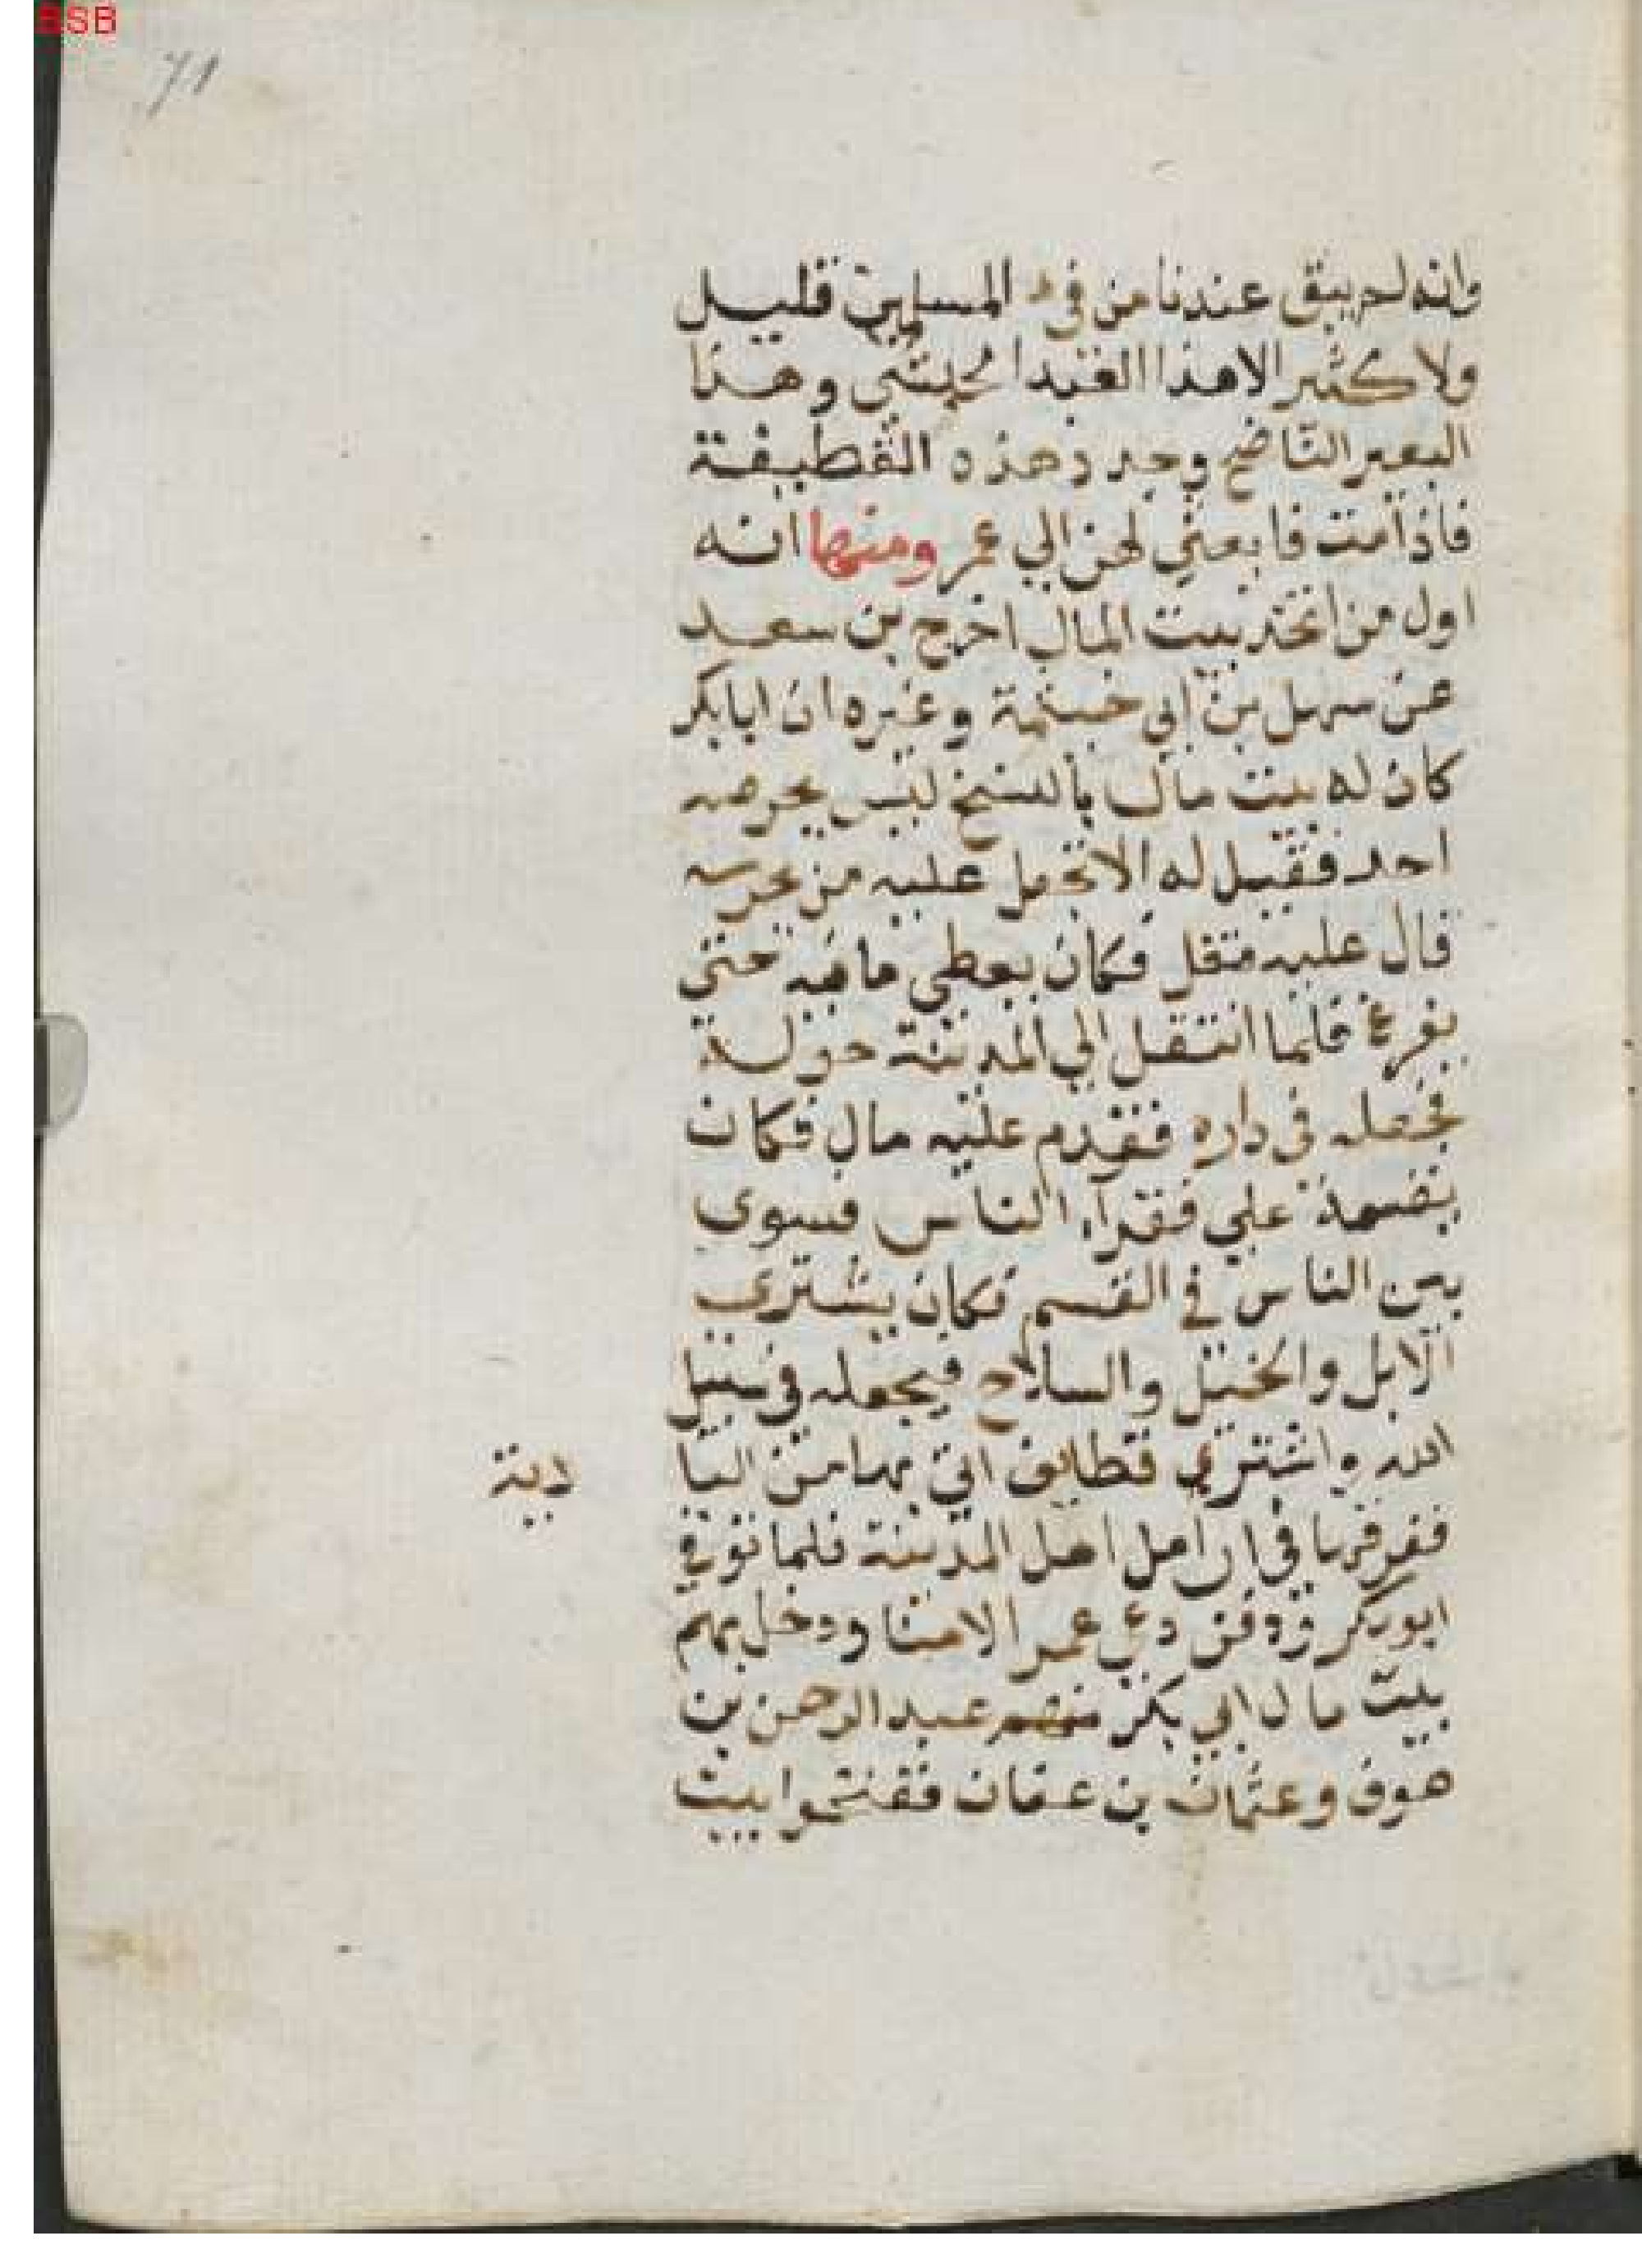 BSB
71
وانه لم يبق عندنا من فيء المسلمين قليل
ولا كثير الا هذا العبد الحبشي وهذا
البعير الناضح وجرد هذه القطيفة
فاذا مت فابعثي لهن الي عمر ومنها انه
اول من اتخذ بيت المال اخرج بن سعد
عن سهل بن ابي خيثمة وغيره ان ابا بكر
كان له بيت مال بالسنح ليس يحرصه
احد فقيل له الا تجعل عليه من يحرسه
قال عليه قفل فكان يعطي ما فيه حتي
يفرغ فلما انتقل الي المدينة حوله
فجعله في داره فقدم عليه مال فكان
يقسمه علي فقرآء الناس فسوي
بين الناس في القسم فكان يشتري
الابل والخيل والسلاح فيجعله في سبيل
الله واشتري قطايف اتي بها من البا
دية
ففرقها في ارامل اهل المدينة فلما توفي
ابو بكر ودفن دعي عمر الامنا ودخل بهم
بيت مال ابي بكر منهم عبد الرحمن بن
عوف وعثمان بن عفان ففتحوا بيت